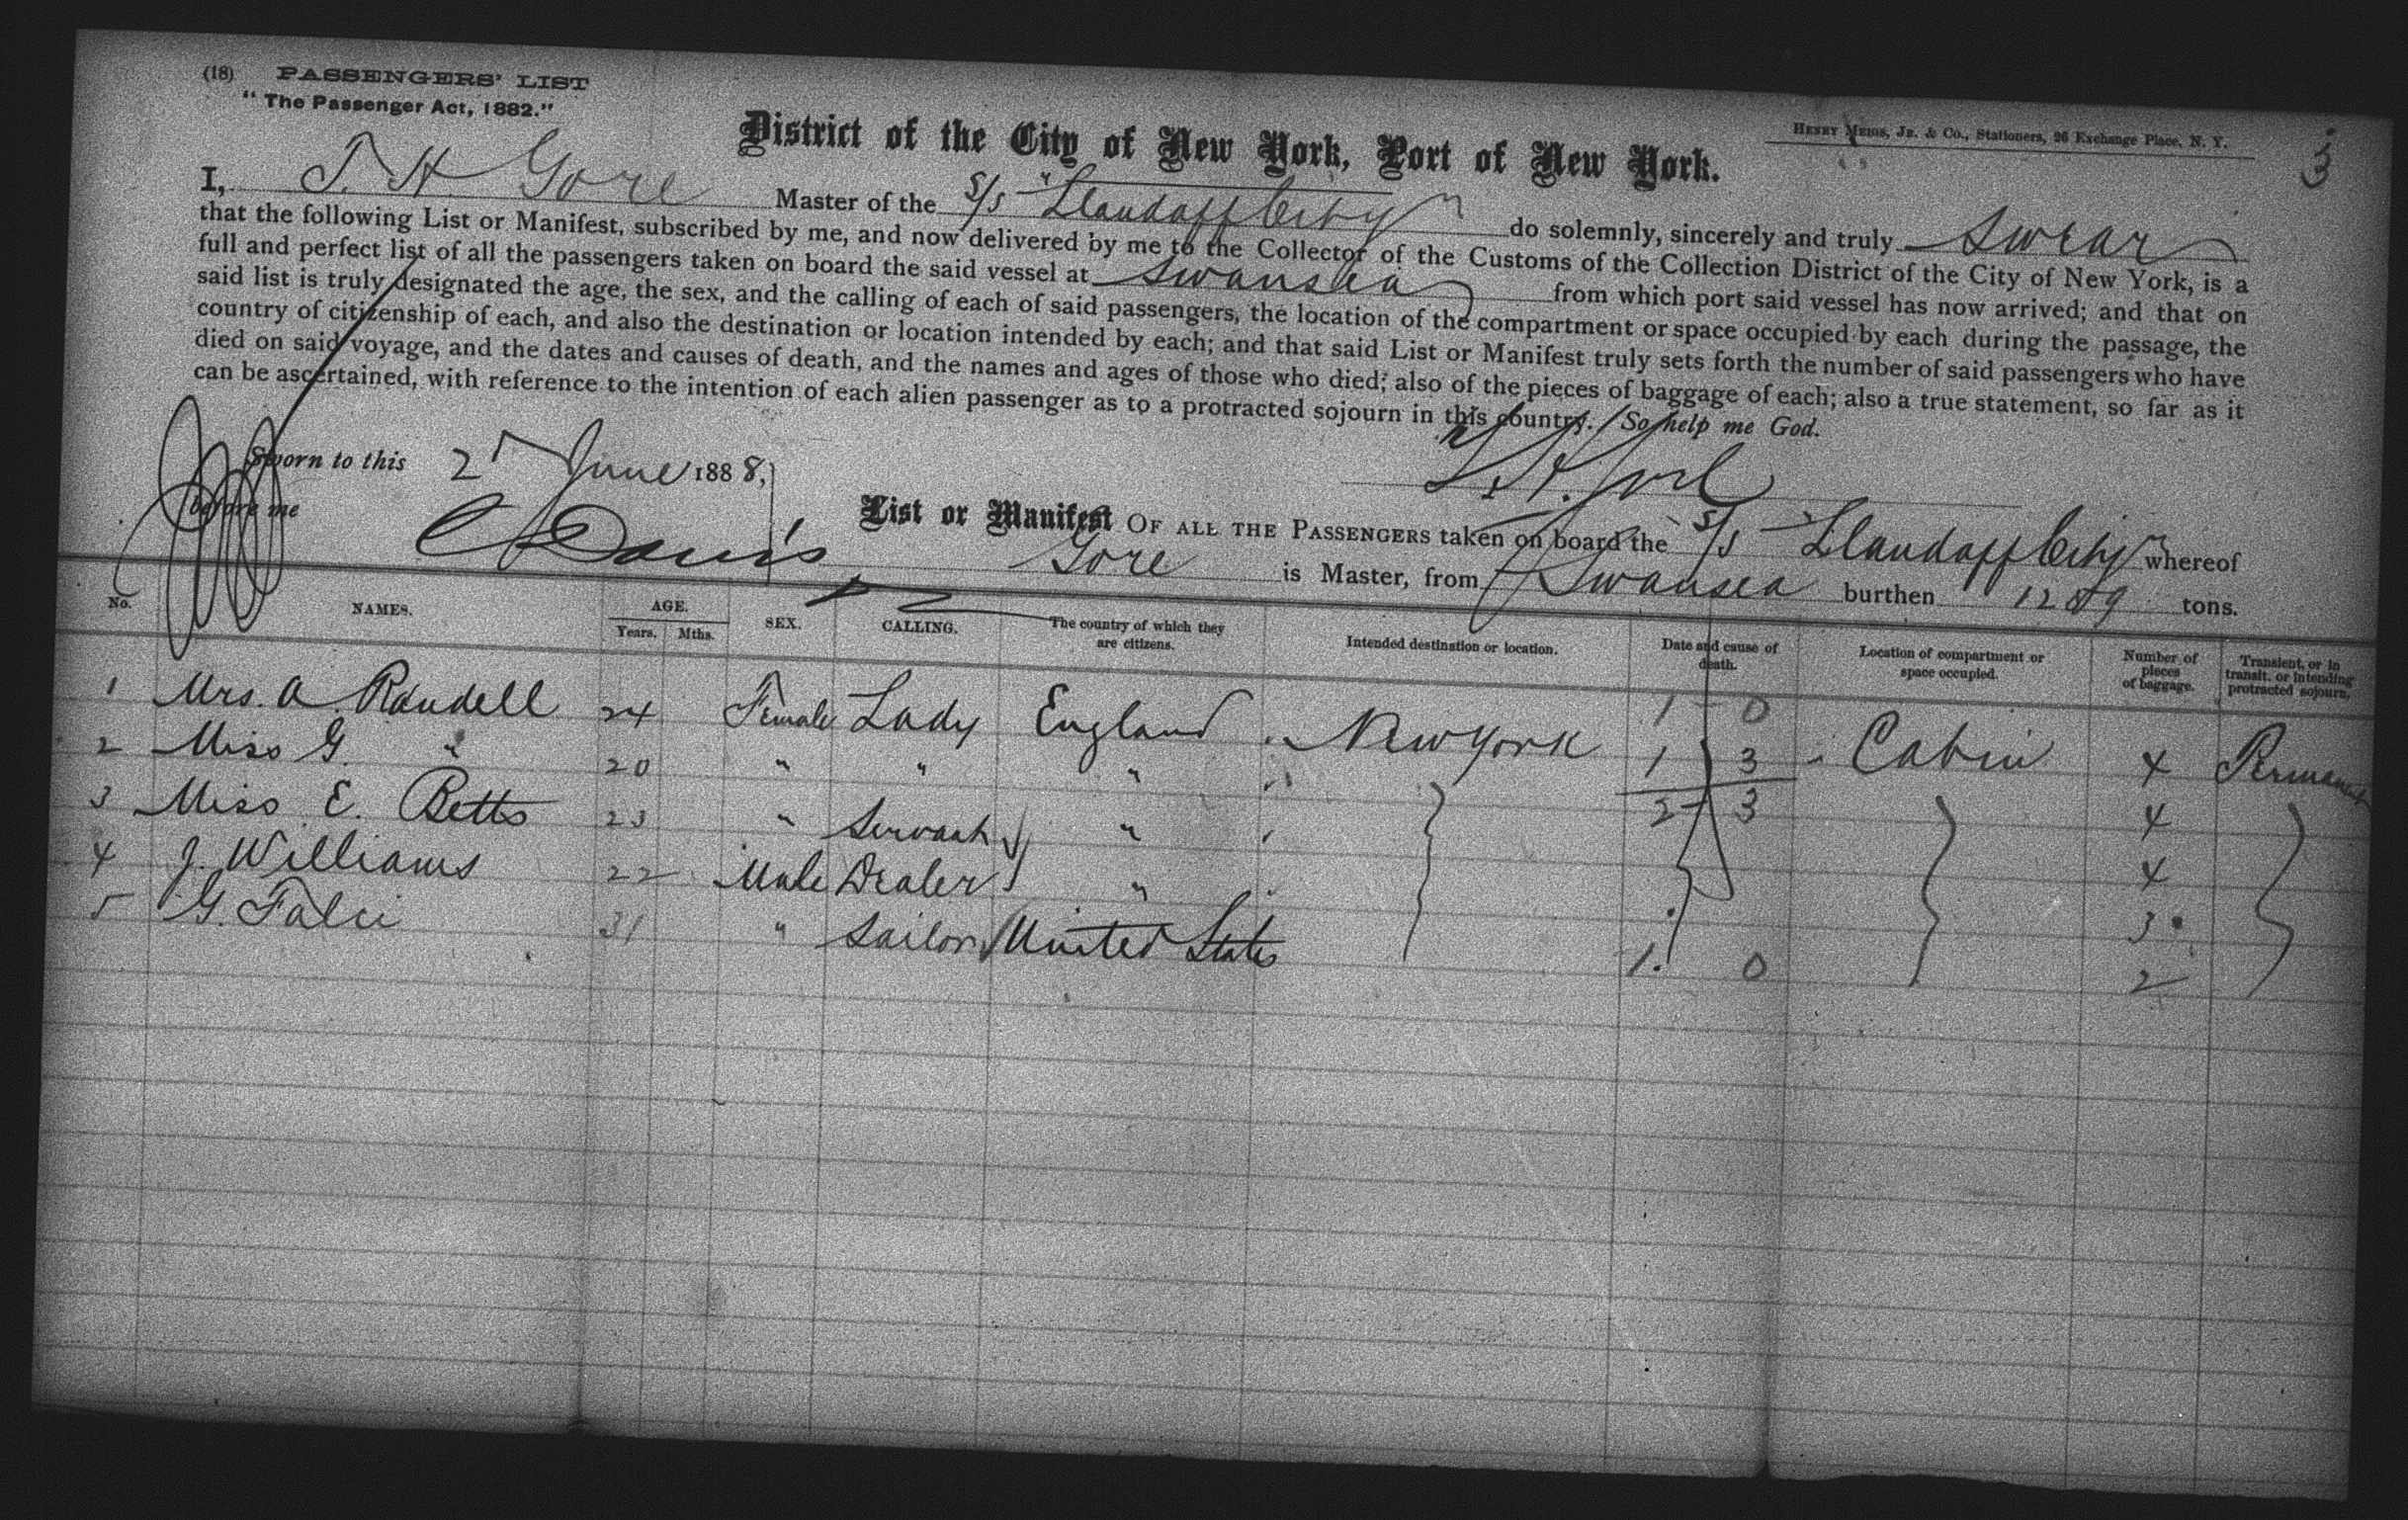 (18) PASSENGERS' LIST
" The Passenger Act, 1882."
HENRY MEIGS, JR. & CO., Stationers, 26 Exchange Place, N. Y.
3
District of the City of New York, Port of New York.
I, T. H Gore Master of the S/S "Llandaff City" do solemnly, sincerely and truly Swear
that the following List or Manifest, subscribed by me, and now delivered by me to the Collector of the Customs of the Collection District of the City of New York, is a
full and perfect list of all the passengers taken on board the said vessel at Swansea from which port said vessel has now arrived; and that on
said list is truly designated the age, the sex, and the calling of each of said passengers, the location of the compartment or space occupied by each during the passage, the
country of citizenship of each, and also the destination or location intended by each; and that said List or Manifest truly sets forth the number of said passengers who have
died on said voyage, and the dates and causes of death, and the names and ages of those who died; also of the pieces of baggage of each; also a true statement, so far as it
can be ascertained, with reference to the intention of each alien passenger as to a protracted sojourn in this country. So help me God.
Sworn to this June 1888,
T. H. Gore
before me Davis
List or Manifest OF ALL THE PASSENGERS taken on board the S/S "Llandaff City" whereof
Gore is Master, from Swansea burthen tons.
No. NAMES. AGE. Years. Mths. SEX. CALLING. The country of which they are citizens. Intended destination or location. Date and cause of death. Location of compartment or space occupied. Number of pieces of baggage. Transient, or in transit, or intending protracted sojourn.
1 Mrs. A. Randell 24 Female Lady England New York 1 0 Cabin 4 Permanent
2 Miss G. " 20 " " " 1 3 4
3 Miss E. Betts 23 " Servant " 2 3 4
4 J. Williams 22 Male Dealer " 3
5 G. Falci 31 " Sailor United States 1. 0 2